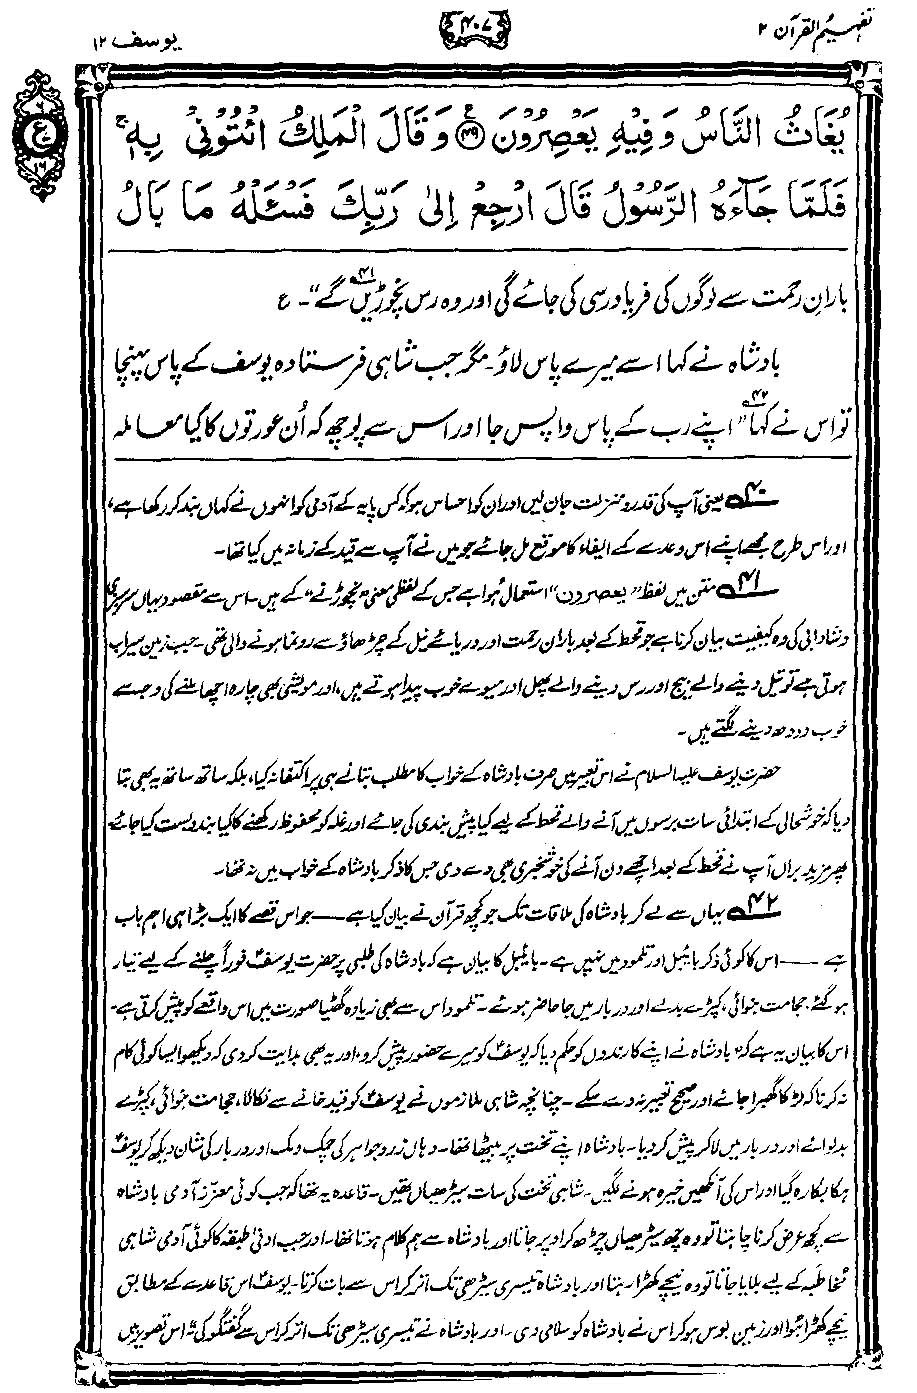 تفہیم القرآن ۲
۴۰۷
یوسف ۱۲
یُغَاثُ النَّاسُ وَفِیْهِ یَعْصِرُوْنَ ﴿۴۹﴾ وَقَالَ الْمَلِكُ ائْتُوْنِیْ بِهٖ ۚ
فَلَمَّا جَآءَهُ الرَّسُوْلُ قَالَ ارْجِعْ اِلٰی رَبِّكَ فَسْـَٔلْهُ مَا بَالُ
ع
۱۶
بارانِ رحمت سے لوگوں کی فریاد رسی کی جائے گی اور وہ رس نچوڑیں گے“۴۱۔ ع
بادشاہ نے کہا اسے میرے پاس لاؤ۔ مگر جب شاہی فرستادہ یوسف کے پاس پہنچا
تو اس نے کہا۴۲ ”اپنے رب کے پاس واپس جا اور اس سے پوچھ کہ اُن عورتوں کا کیا معاملہ
۴۰ یعنی آپ کی قدر و منزلت جان لیں اور ان کو احساس ہو کہ کس پایہ کے آدمی کو انہوں نے کہاں بند کر رکھا ہے،
اور اس طرح مجھے اپنے اس وعدے کے ایفاء کا موقع مل جائے جو میں نے آپ سے قید کے زمانہ میں کیا تھا۔
۴۱ متن میں لفظ ”یعصرون“ استعمال ہوا ہے جس کے لفظی معنی ”نچوڑنے“ کے ہیں۔ اس سے مقصود یہاں سرسبزی
و شادابی کی وہ کیفیت بیان کرنا ہے جو قحط کے بعد بارانِ رحمت اور دریائے نیل کے چڑھاؤ سے رونما ہونے والی تھی۔ جب زمین سیراب
ہوتی ہے تو تیل دینے والے بیج اور رس دینے والے پھل اور میوے خوب پیدا ہوتے ہیں، اور مویشی بھی چارہ اچھا ملنے کی وجہ سے
خوب دودھ دینے لگتے ہیں۔
حضرت یوسف علیہ السلام نے اس تعبیر میں صرف بادشاہ کے خواب کا مطلب بتانے ہی پر اکتفا نہ کیا، بلکہ ساتھ ساتھ یہ بھی بتا
دیا کہ خوشحالی کے ابتدائی سات برسوں میں آنے والے قحط کے لیے کیا پیش بندی کی جائے اور غلہ کو محفوظ رکھنے کا کیا بندوبست کیا جائے۔
پھر مزید برآں آپ نے قحط کے بعد اچھے دن آنے کی خوشخبری بھی دے دی جس کا ذکر بادشاہ کے خواب میں نہ تھا۔
۴۲ یہاں سے لے کر بادشاہ کی ملاقات تک جو کچھ قرآن نے بیان کیا ہے —— جو اس قصے کا ایک بڑا ہی اہم باب
ہے —— اس کا کوئی ذکر بائیبل اور تلمود میں نہیں ہے۔ بائیبل کا بیان ہے کہ بادشاہ کی طلبی پر حضرت یوسفؑ فوراً چلنے کے لیے تیار
ہو گئے، حجامت بنوائی، کپڑے بدلے اور دربار میں جا حاضر ہوئے۔ تلمود اس سے بھی زیادہ گھٹیا صورت میں اس واقعے کو پیش کرتی ہے۔
اس کا بیان یہ ہے کہ ”بادشاہ نے اپنے کارندوں کو حکم دیا کہ یوسفؑ کو میرے حضور پیش کرو، اور یہ بھی ہدایت کر دی کہ دیکھو ایسا کوئی کام
نہ کرنا کہ لڑکا گھبرا جائے اور صحیح تعبیر نہ دے سکے۔ چنانچہ شاہی ملازموں نے یوسفؑ کو قید خانے سے نکالا، حجامت بنوائی، کپڑے
بدلوائے اور دربار میں لا کر پیش کر دیا۔ بادشاہ اپنے تخت پر بیٹھا تھا۔ وہاں زر و جواہر کی چمک دمک اور دربار کی شان دیکھ کر یوسفؑ
ہکا بکا رہ گیا اور اس کی آنکھیں خیرہ ہونے لگیں۔ شاہی تخت کی سات سیڑھیاں تھیں۔ قاعدہ یہ تھا کہ جب کوئی معزز آدمی بادشاہ
سے کچھ عرض کرنا چاہتا تو وہ چھ سیڑھیاں چڑھ کر اوپر جاتا اور بادشاہ سے ہم کلام ہوتا تھا۔ اور جب ادنیٰ طبقہ کا کوئی آدمی شاہی
مُخاطَبہ کے لیے بلایا جاتا تو وہ نیچے کھڑا رہتا اور بادشاہ تیسری سیڑھی تک اتر کر اس سے بات کرتا۔ یوسفؑ اس قاعدے کے مطابق
نیچے کھڑا ہوا اور زمین بوس ہو کر اس نے بادشاہ کو سلامی دی۔ اور بادشاہ نے تیسری سیڑھی تک اتر کر اس سے گفتگو کی“۔ اس تصویر میں